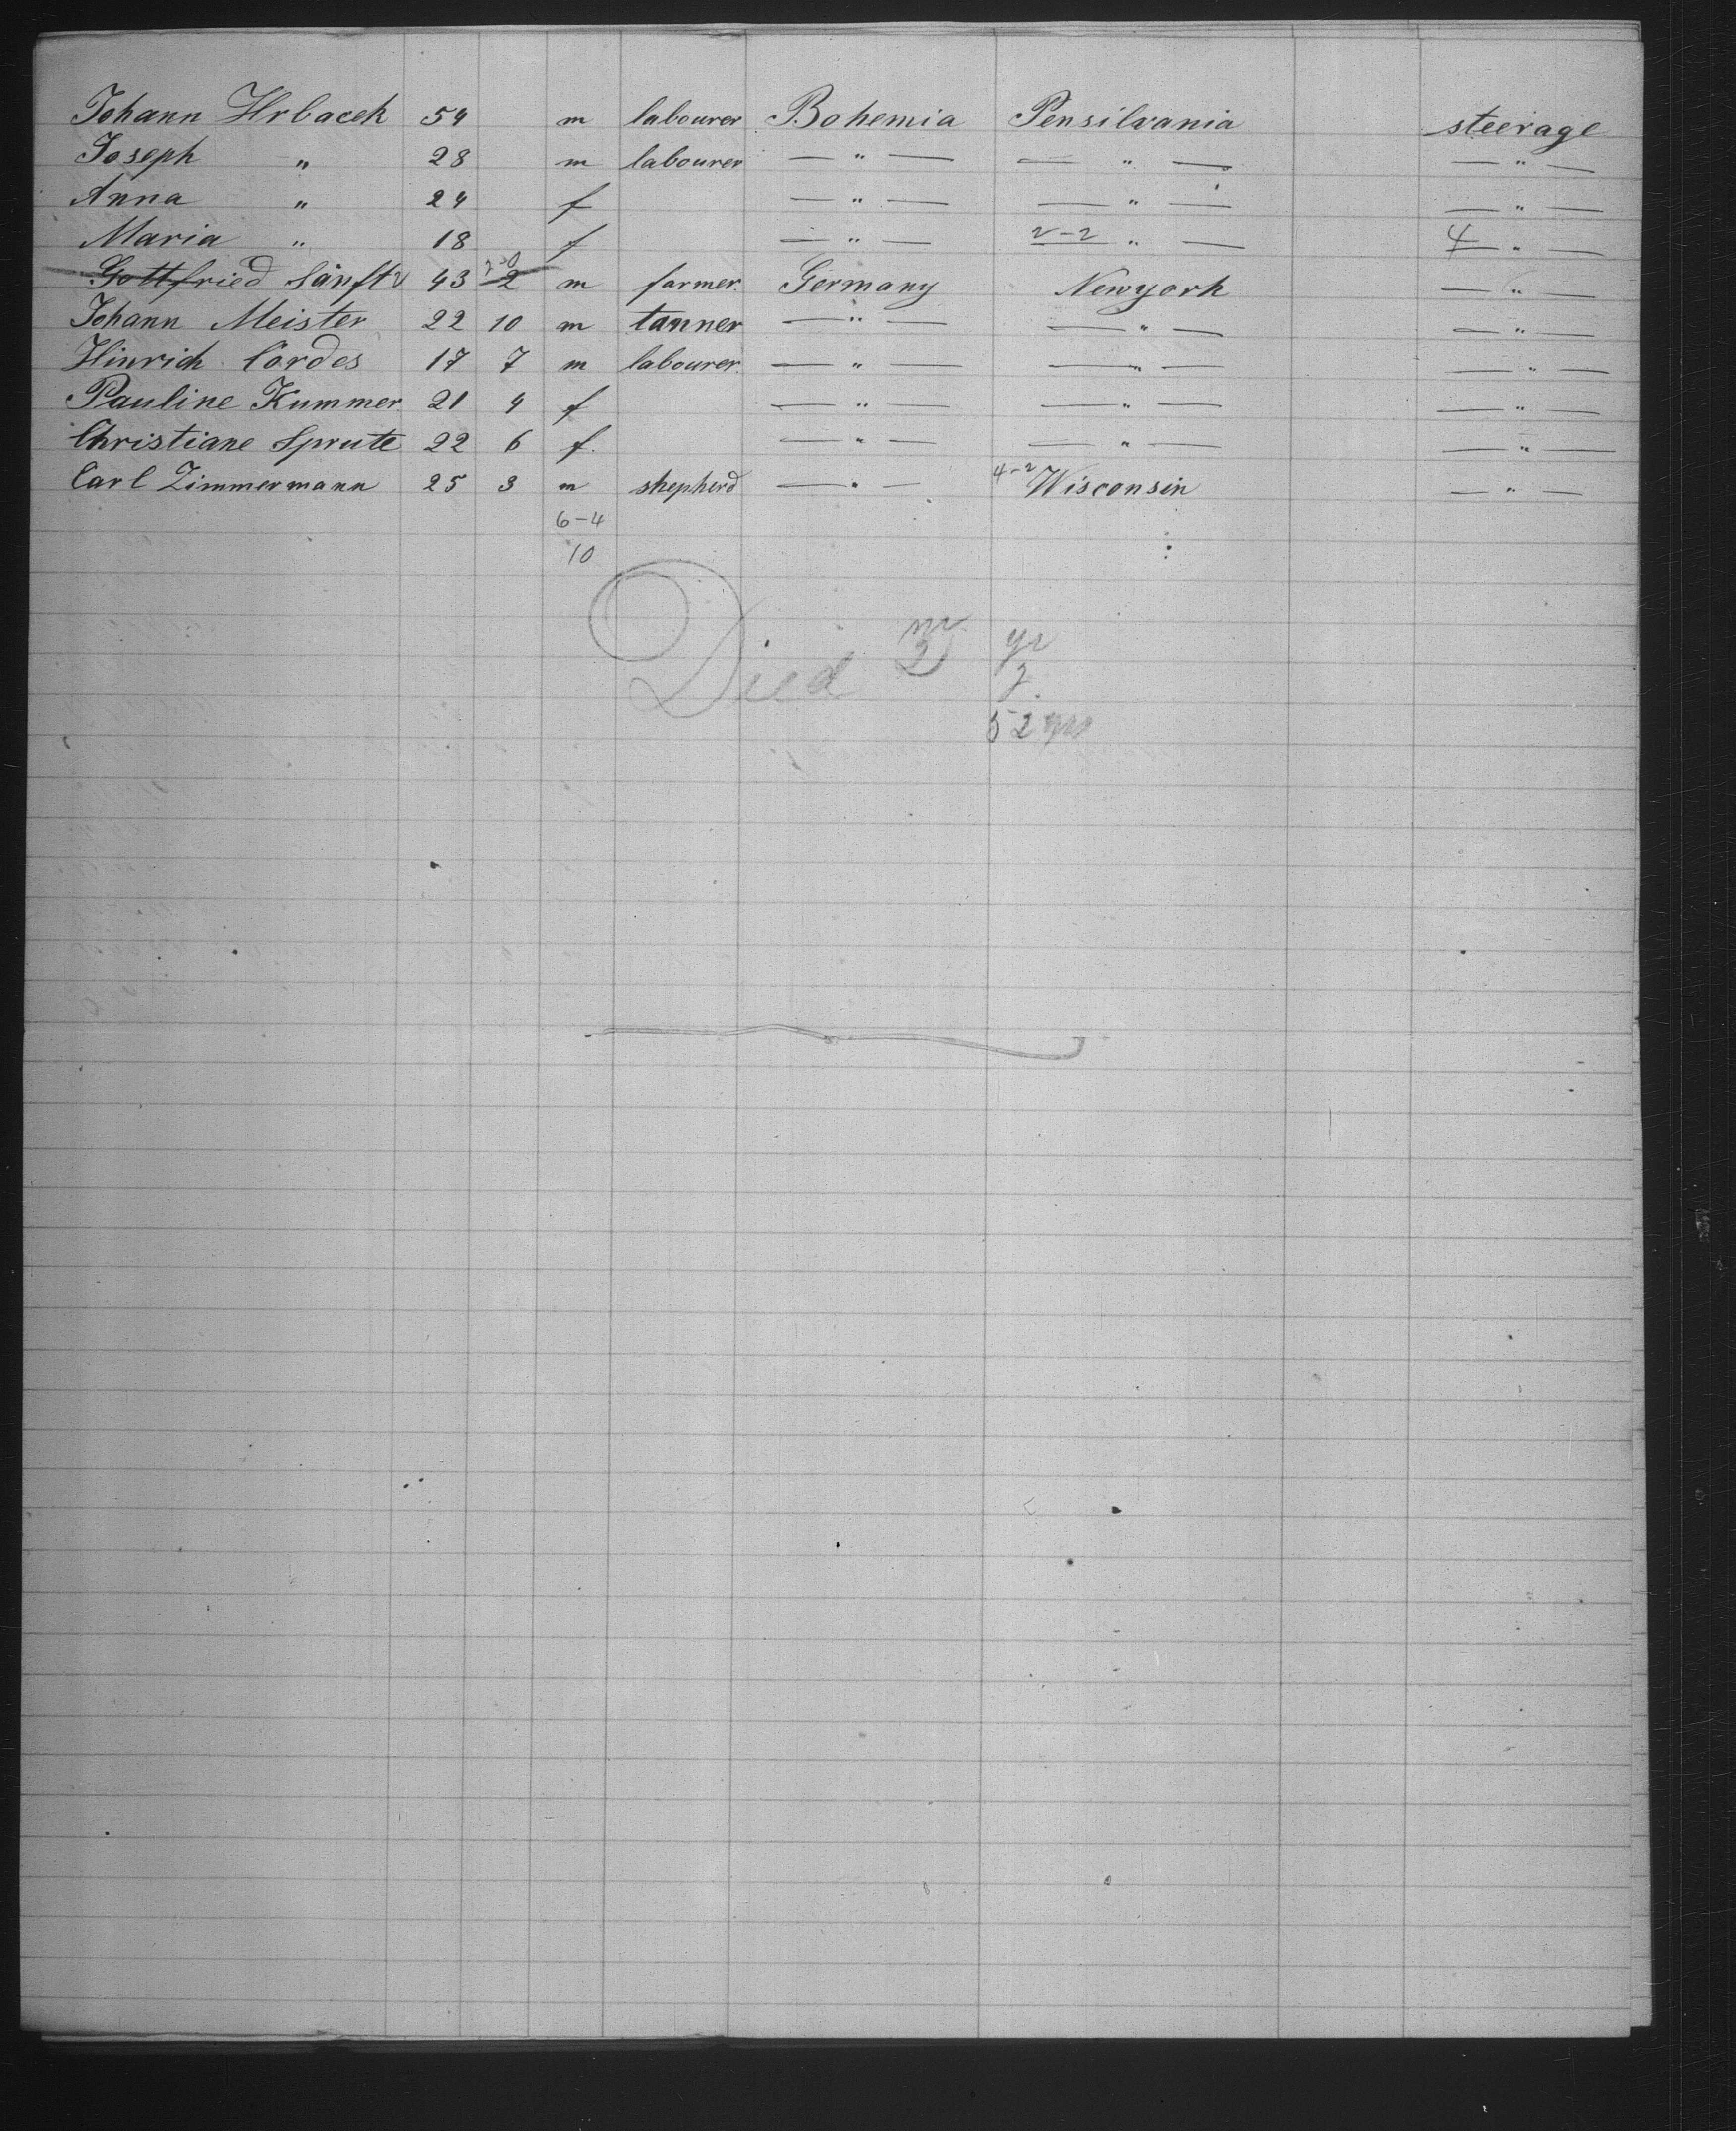 Johann Hrbacek 54 m labourer Bohemia Pensilvania steerage
Joseph " 28 m labourer — " — — " — — " —
Anna " 24 f — " — — " — — " —
Maria " 18 f — " — 2-2 " — 4 " —
Gottfried Sänft 43 2 m farmer. Germany Newyork — " —
Johann Meister 22 10 m tanner — " — — " — — " —
Hinrich Cordes 17 7 m labourer. — " — — " — — " —
Pauline Kummer 21 4 f — " — — " — — " —
Christiane Sprute 22 6 f. — " — — " — — " —
Carl Zimmermann 25 3 m shepherd — " — 4-2 Wisconsin — " —
6-4
10
Died 2 yr
52 yrs